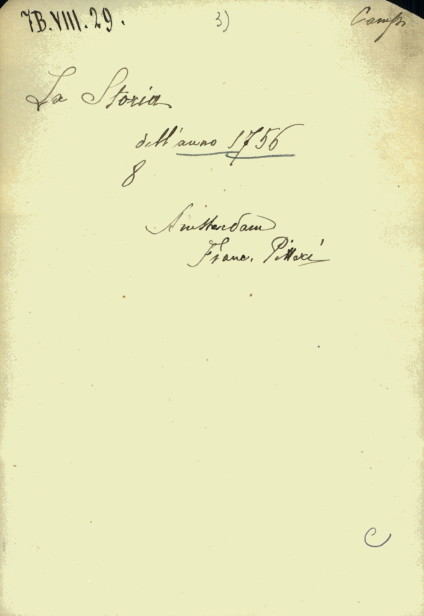 7B.VIII.29.
3)
Camp.
La Storia
dell'anno 1756
8
Amsterdam
Franc. Pitteri
C